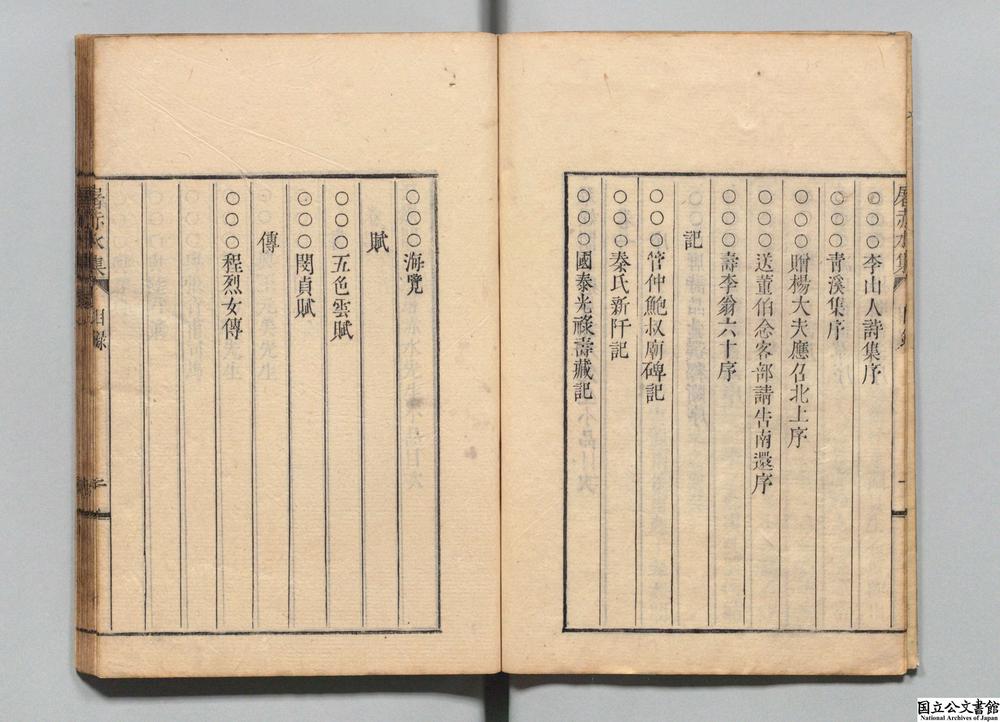 ○○○李山人詩集序
○○○青溪集序
○○○贈楊大夫應召北上序
○○○送董伯念客部請告南還序
○○○壽李翁六十序
記
○○○管仲鮑叔廟碑記
○○○秦氏新阡記
○○○國泰光祿壽藏記
○○○海覽
賦
○○○五色雲賦
○○○閔貞賦
傳
○○○程烈女傳
屠赤水集
目錄
二
国立公文書館
National Archives of Japan